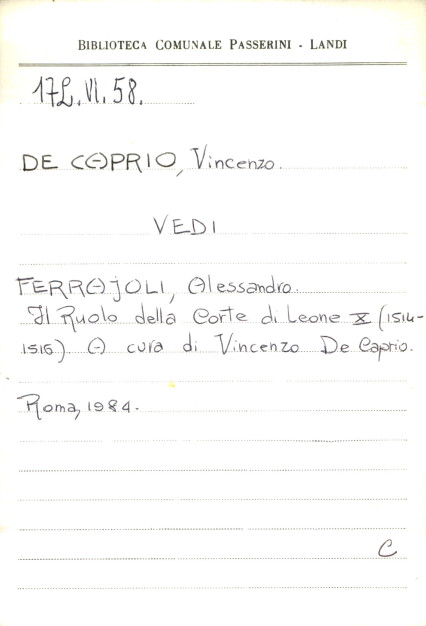 BIBLIOTECA COMUNALE PASSERINI - LANDI
17L.VI.58.
DE CAPRIO, Vincenzo.
VEDI
FERRAJOLI, Alessandro.
Il Ruolo della Corte di Leone X (1514-
1516). A cura di Vincenzo De Caprio.
Roma, 1984.
C